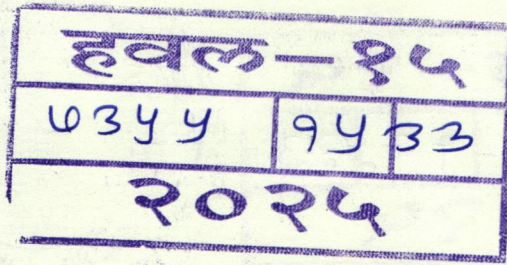 हवल-१५
७३५५ १५ ३३
२०२५